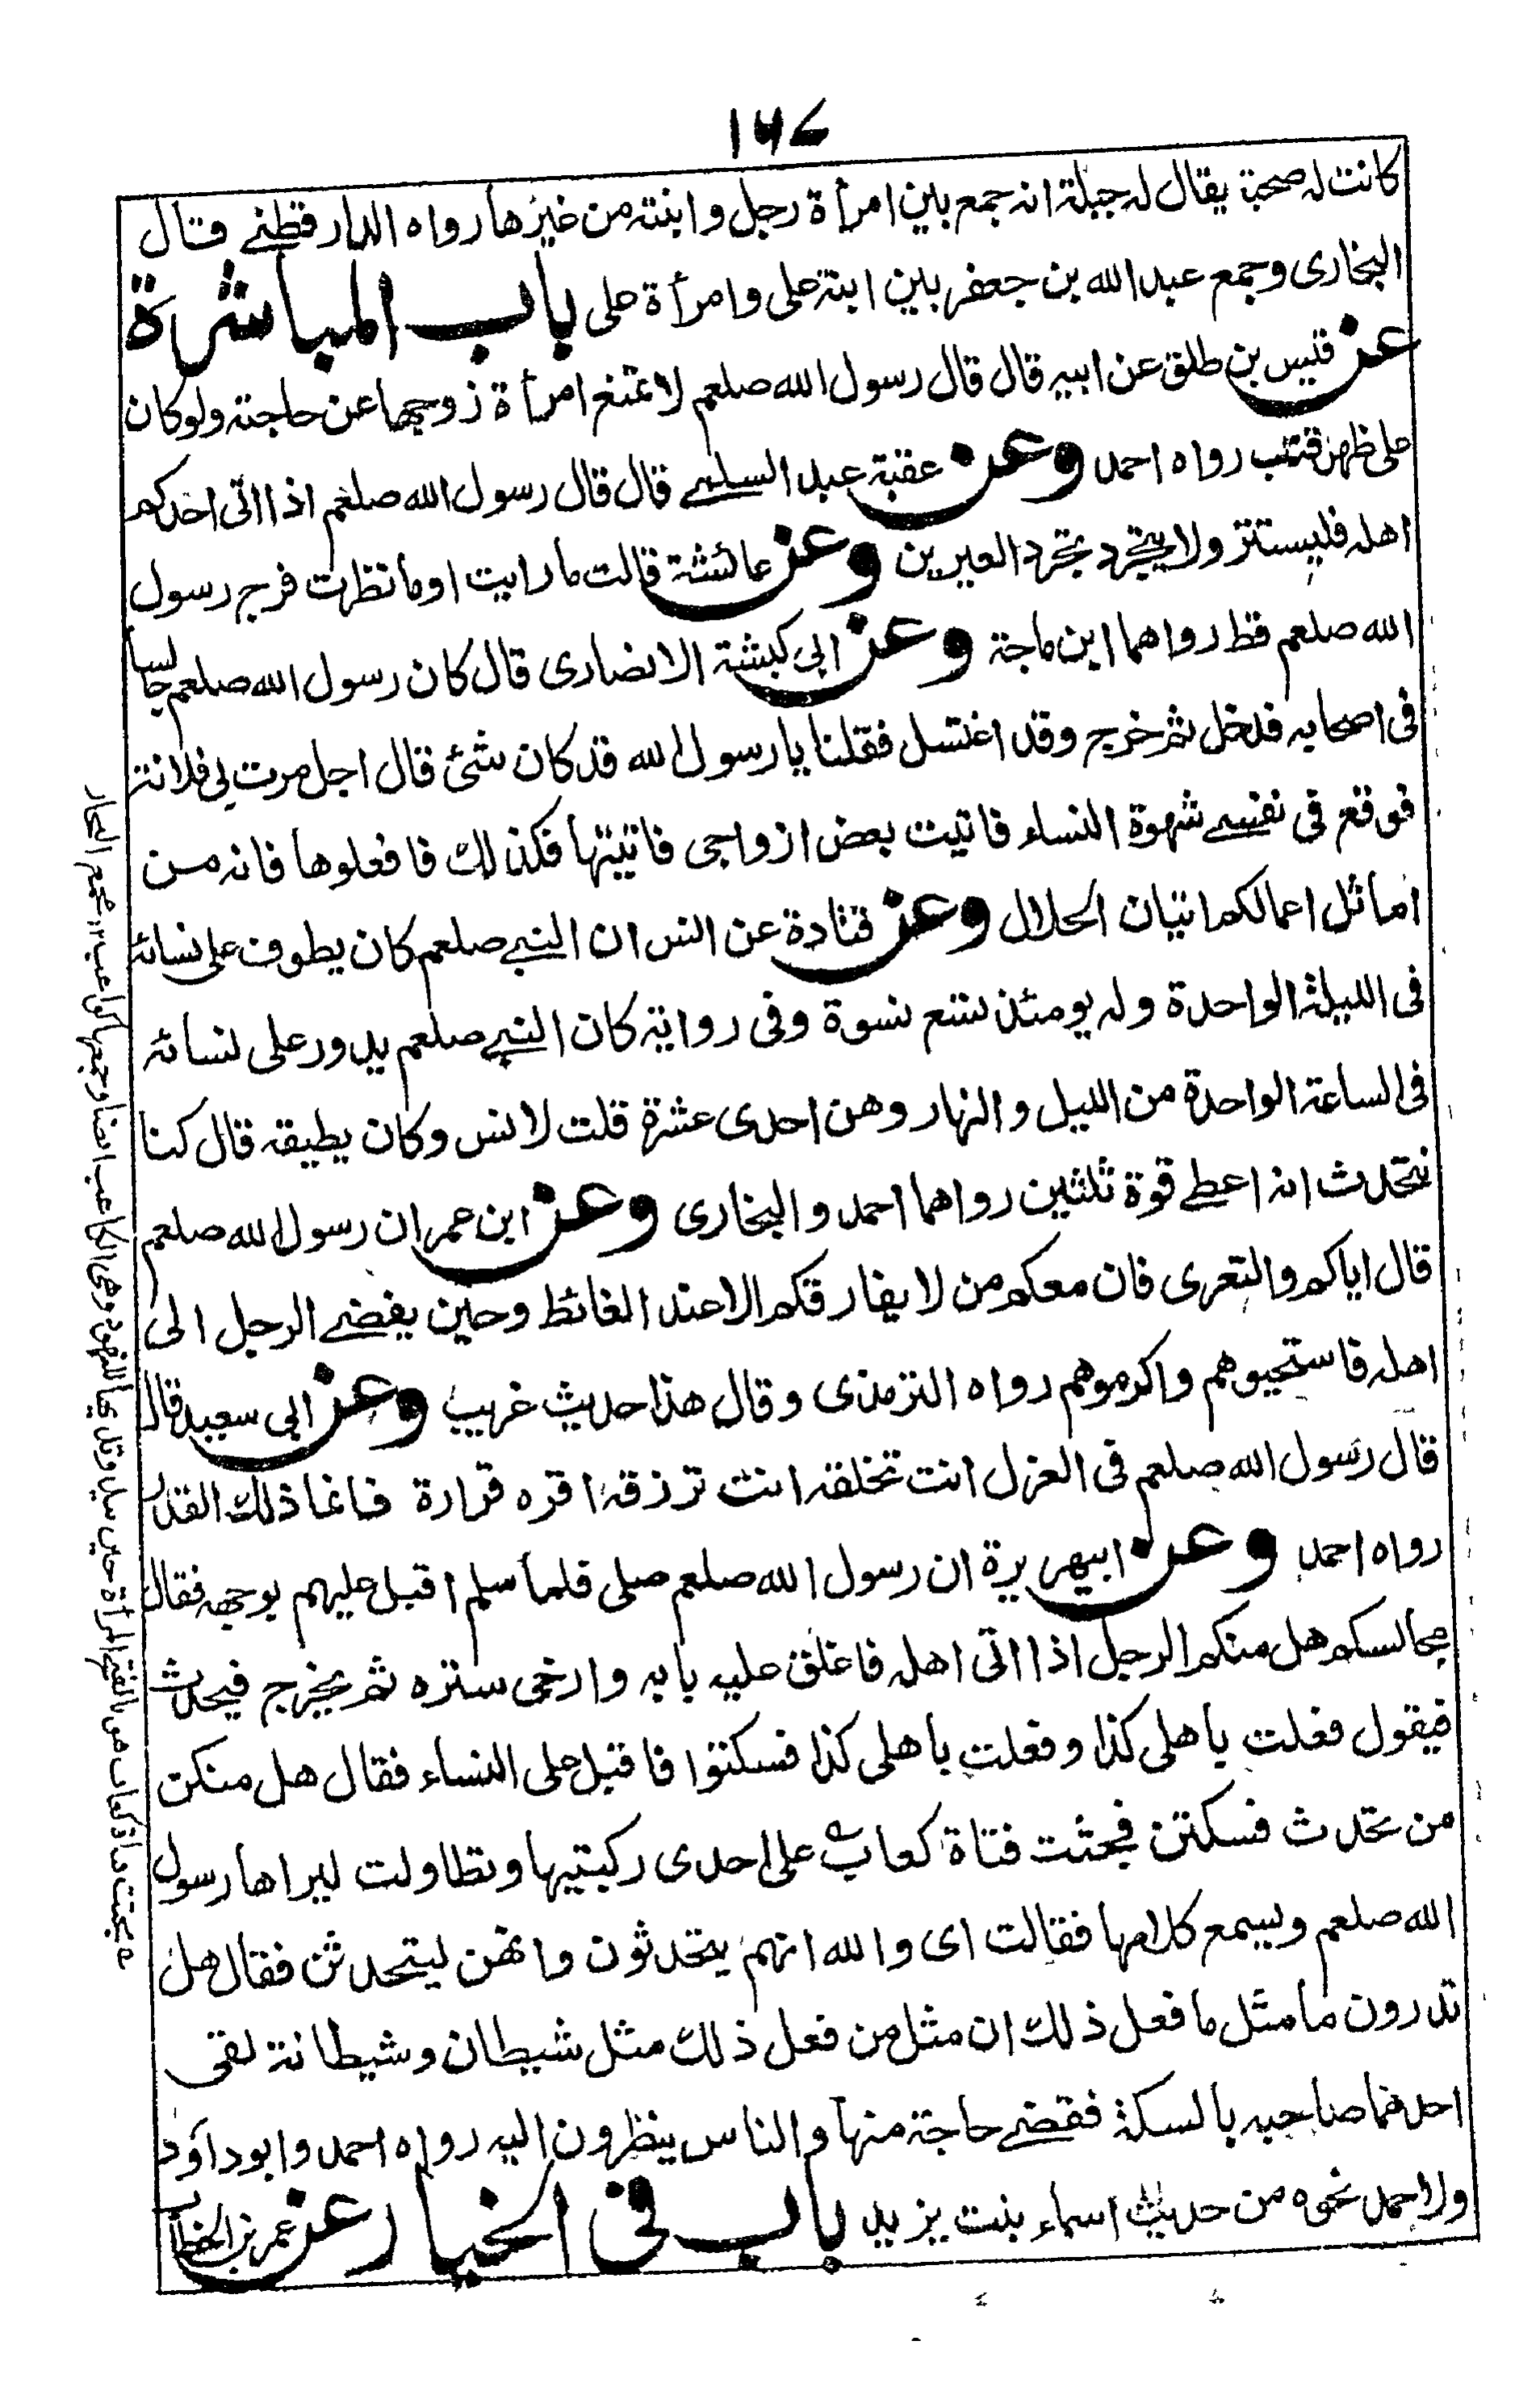 ١٦٧
كانت له صحبة يقال له جبلة انه جمع بين امرأة رجل وابنته من غيرها رواه الدارقطني قال
البخارى وجمع عبد الله بن جعفر بين ابنة على وامرأة على باب المباشرة
عن قيس بن طلق عن ابيه قال قال رسول الله صلعم لا تمنع امرأة زوجها عن حاجته ولو كان
على ظهر قتب رواه احمد وعن عقبة عبد السلمي قال قال رسول الله صلعم اذا اتى احدكم
اهله فليستتر ولا يتجرد تجرد العيرين وعن عائشة قالت ما رايت او ما نظرت فرج رسول
الله صلعم قط رواهما ابن ماجة وعن ابى كبشة الانصارى قال كان رسول الله صلعم جالسا
فى اصحابه فدخل ثم خرج وقد اغتسل فقلنا يا رسول الله قد كان شئ قال اجل مرت بى فلانة
فوقع فى نفسي شهوة النساء فاتيت بعض ازواجى فاتيتها فكذلك فافعلوها فانه من
اماثل اعمالكم اتيان الحلال وعن قتادة عن انس ان النبي صلعم كان يطوف على نسائه
فى الليلة الواحدة وله يومئذ تسع نسوة وفى رواية كان النبي صلعم يدور على نسائه
فى الساعة الواحدة من الليل والنهار وهن احدى عشرة قلت لانس وكان يطيقه قال كنا
نتحدث انه اعطي قوة ثلثين رواهما احمد والبخارى وعن ابن عمر ان رسول الله صلعم
قال اياكم والتعرى فان معكم من لا يفارقكم الا عند الغائط وحين يفضي الرجل الى
اهله فاستحيوهم واكرموهم رواه الترمذى وقال هذا حديث غريب وعن ابى سعيد قال
قال رسول الله صلعم فى العزل انت تخلقه انت ترزقه اقره قرارة فانما ذلك القدر
رواه احمد وعن ابيهريرة ان رسول الله صلعم صلى فلما سلم اقبل عليهم بوجهه فقال
مجالسكم هل منكم الرجل اذا اتى اهله فاغلق عليه بابه وارخى ستره ثم يخرج فيحدث
فيقول فعلت باهلى كذا وفعلت باهلى كذا فسكتوا فاقبل على النساء فقال هل منكن
من تحدث فسكتن فجثت فتاة كعاب على احدى ركبتيها وتطاولت ليراها رسول
الله صلعم ويسمع كلامها فقالت اى والله انهم يتحدثون وانهن ليتحدثن فقال هل
تدرون ما مثل ما فعل ذلك ان مثل من فعل ذلك مثل شيطان وشيطانة لقى
احدهما صاحبه بالسكة فقضي حاجة منها والناس ينظرون اليه رواه احمد وابو داود
ولاحمد نحوه من حديث اسماء بنت يزيد باب فى الخيار عن عمر بن الخطاب